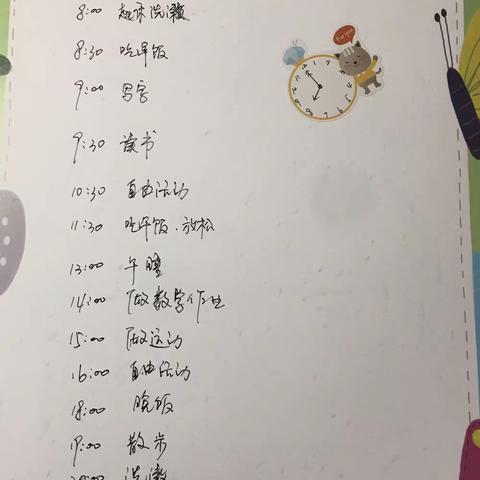 8:00 起床洗漱
8:30 吃早饭
9:00 写字
9:30 读书
10:30 自由活动
11:30 吃午饭.放松
13:00 午睡
14:00 做数学作业
15:00 做运动
16:00 自由活动
18:00 晚饭
19:00 散步
洗漱
For you